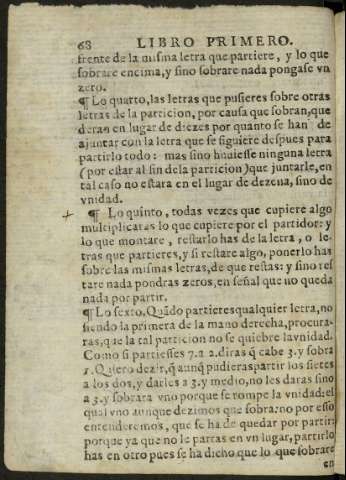 68 LIBRO PRIMERO.
frente de la misma letra que partiere, y lo que
sobrare encima, y sino sobrare nada pongase vn
zero.
¶ Lo quarto, las letras que pusieres sobre otras
letras de la particion, por causa que sobran, que
deran en lugar de diezes por quanto se han de
ajuntar con la letra que se siguiere despues para
partirlo todo: mas sino huuiesse ninguna letra
(por estar al fin dela particion) que juntarle, en
tal caso no estara en el lugar de dezena, sino de
vnidad.
¶ Lo quinto, todas vezes que cupiere algo
multiplicaras lo que cupiere por el partidor: y
lo que montare, restarlo has de la letra, o le-
tras que partieres, y si restare algo, ponerlo has
sobre las mismas letras, de que restas: y sino res
tare nada pondras zeros, en señal que no queda
nada por partir.
¶ Lo sexto. Quãdo partieres qualquier letra, no
siendo la primera de la mano derecha, procura-
ras, que la tal particion no se quiebre la vnidad.
Como si partiesses 7. a 2. diras q̃ cabe 3. y sobra
1. Quiero dezir, q̃ aunq̃ pudieras partir los sietes
a los dos, y darles a 3. y medio, no les daras sino
a 3. y sobrara vno porque se rompe la vnidad: el
qual vno aunque dezimos que sobra: no por esso
entenderemos, que se ha de quedar por partir:
porque ya que no le partas en vn lugar, partirlo
has en otro pues se ha dicho que lo que sobrare
en